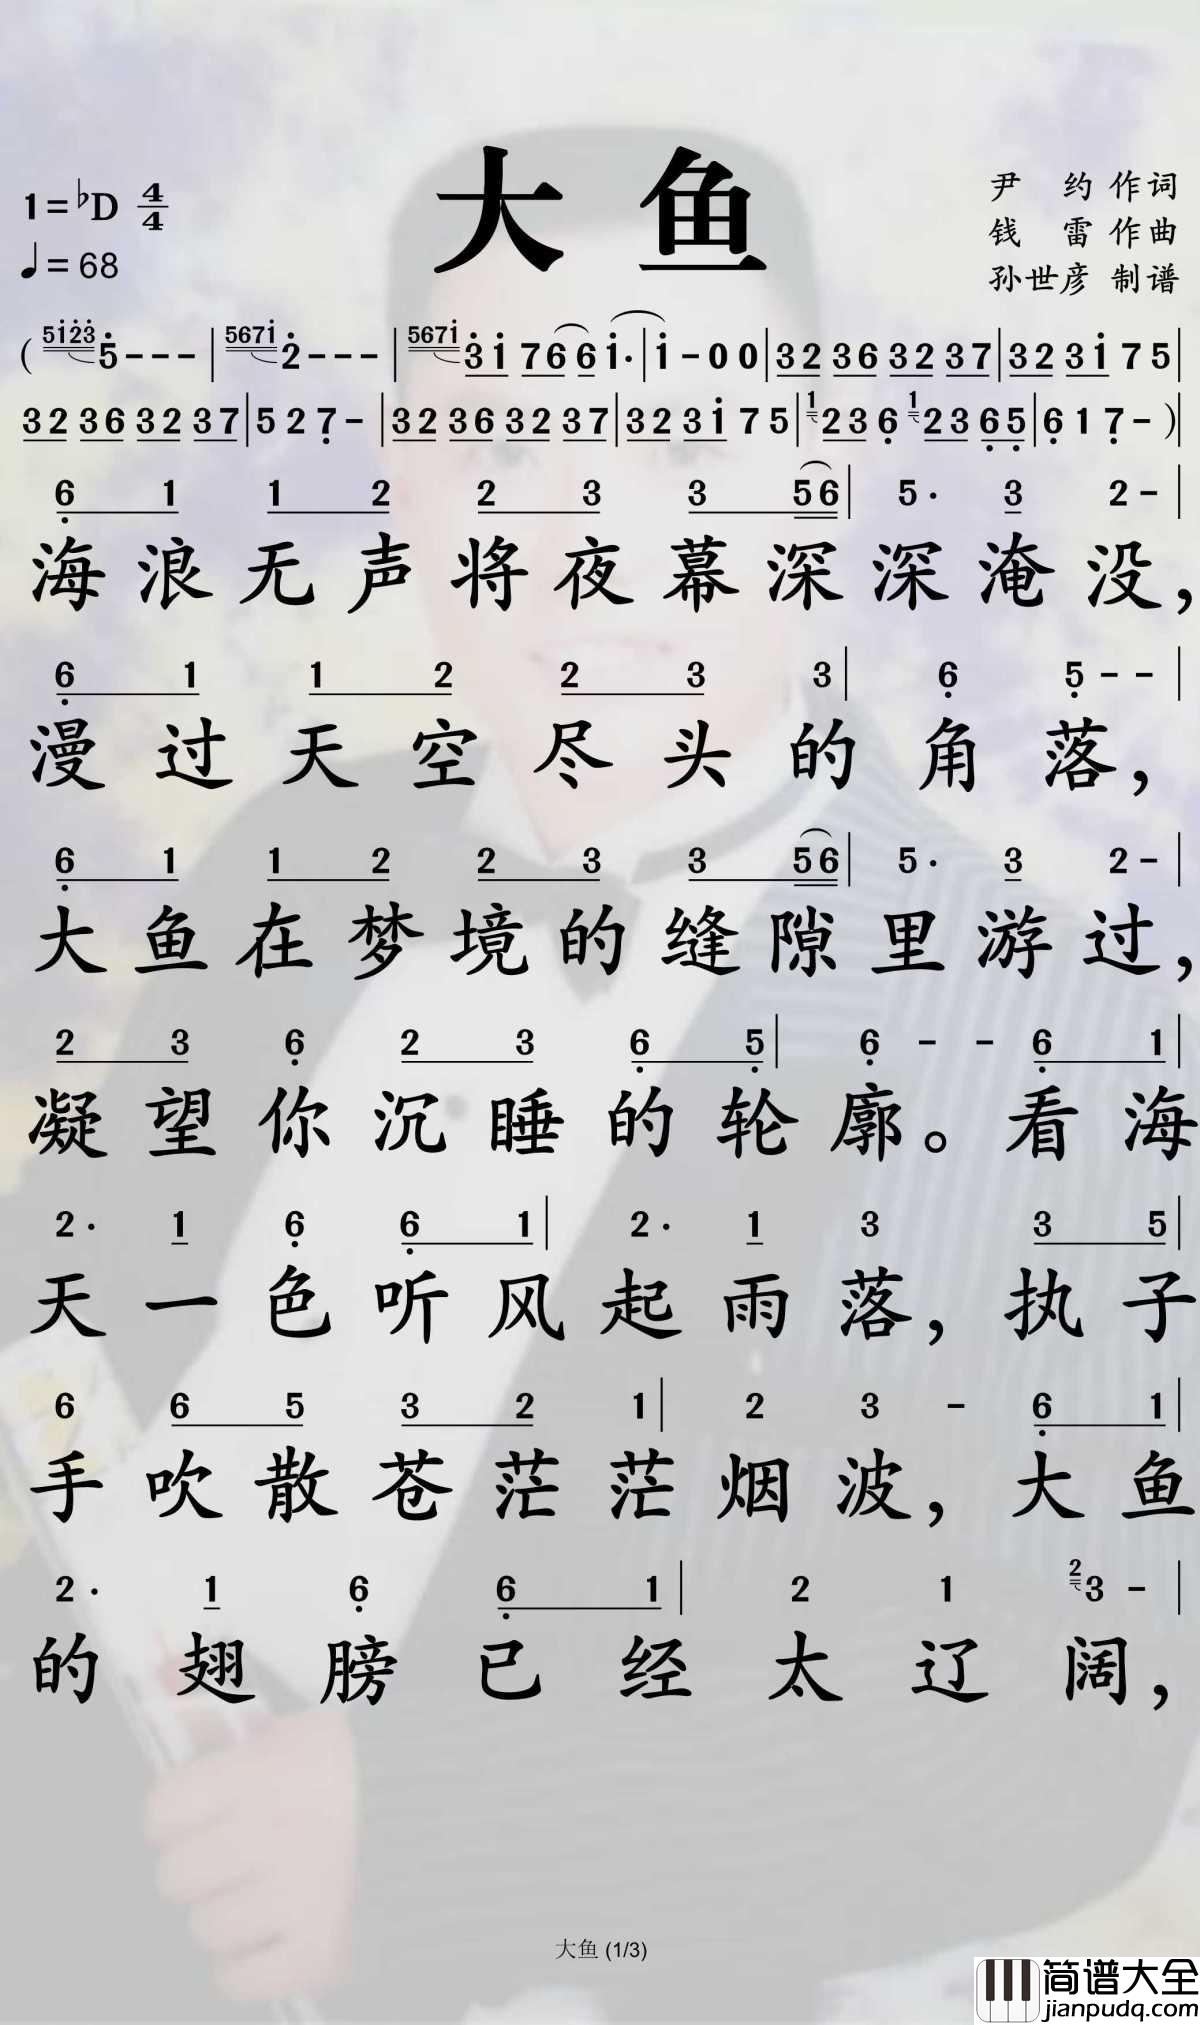 大鱼
1=♭D 4/4
♩=68
尹 约 作词
钱 雷 作曲
孙世彦 制谱
( 5123 5 - - - | 5671 2 - - - | 5671 3 1 7 6 6 1· | 1 - 0 0 | 3 2 3 6 3 2 3 7 | 3 2 3 1 7 5
3 2 3 6 3 2 3 7 | 5 2 7 - | 3 2 3 6 3 2 3 7 | 3 2 3 1 7 5 | 1 2 3 6 1 2 3 6 5 | 6 1 7 - ) |
6 1 1 2 2 3 3 5 6 | 5· 3 2 - |
海浪无声将夜幕深深淹没，
6 1 1 2 2 3 3 | 6 5 - - |
漫过天空尽头的角落，
6 1 1 2 2 3 3 5 6 | 5· 3 2 - |
大鱼在梦境的缝隙里游过，
2 3 6 2 3 6 5 | 6 - - 6 1 |
凝望你沉睡的轮廓。看海
2· 1 6 6 1 | 2· 1 3 3 5 |
天一色听风起雨落，执子
6 6 5 3 2 1 | 2 3 - 6 1 |
手吹散苍茫茫烟波，大鱼
2· 1 6 6 1 | 2 1 2 3 - |
的翅膀已经太辽阔，
大鱼 (1/3)
简谱大全
jianpudq.com